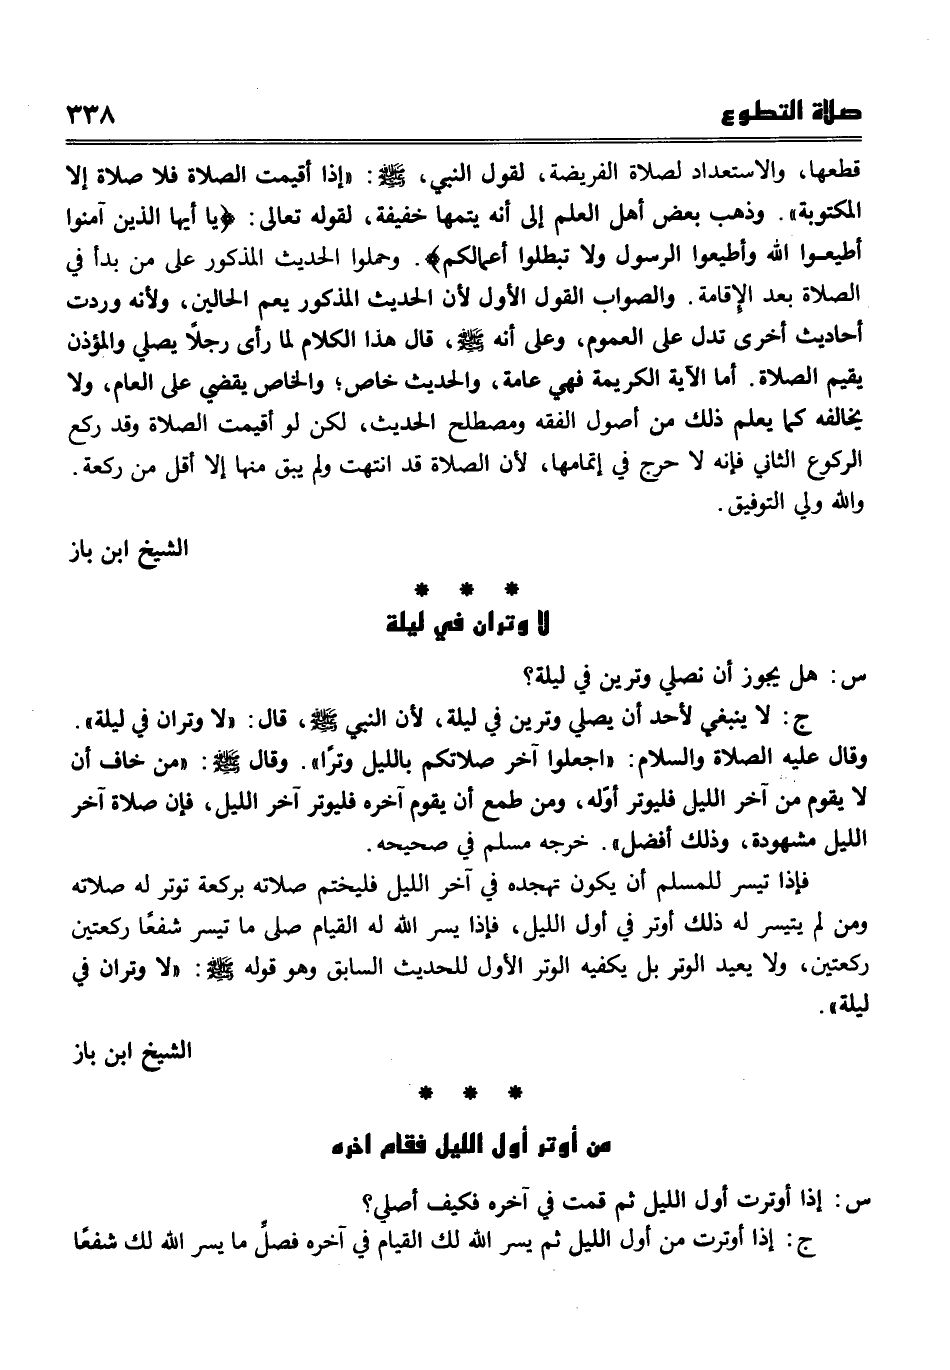 صلاة التطوع ٣٣٨
قطعها، والاستعداد لصلاة الفريضة، لقول النبي، ﷺ: «إذا أقيمت الصلاة فلا صلاة إلا
المكتوبة». وذهب بعض أهل العلم إلى أنه يتمها خفيفة، لقوله تعالى: ﴿يا أيها الذين آمنوا
أطيعوا الله وأطيعوا الرسول ولا تبطلوا أعمالكم﴾. وحملوا الحديث المذكور على من بدأ في
الصلاة بعد الإقامة. والصواب القول الأول لأن الحديث المذكور يعم الحالين، ولأنه وردت
أحاديث أخرى تدل على العموم، وعلى أنه ﷺ، قال هذا الكلام لما رأى رجلاً يصلي والمؤذن
يقيم الصلاة. أما الآية الكريمة فهي عامة، والحديث خاص؛ والخاص يقضي على العام، ولا
يخالفه كما يعلم ذلك من أصول الفقه ومصطلح الحديث، لكن لو أقيمت الصلاة وقد ركع
الركوع الثاني فإنه لا حرج في إتمامها، لأن الصلاة قد انتهت ولم يبق منها إلا أقل من ركعة.
والله ولي التوفيق.
الشيخ ابن باز
* * *
لا وتران في ليلة
س: هل يجوز أن نصلي وترين في ليلة؟
ج: لا ينبغي لأحد أن يصلي وترين في ليلة، لأن النبي ﷺ، قال: «لا وتران في ليلة».
وقال عليه الصلاة والسلام: «اجعلوا آخر صلاتكم بالليل وترًا». وقال ﷺ: «من خاف أن
لا يقوم من آخر الليل فليوتر أوّله، ومن طمع أن يقوم آخره فليوتر آخر الليل، فإن صلاة آخر
الليل مشهودة، وذلك أفضل». خرجه مسلم في صحيحه.
فإذا تيسر للمسلم أن يكون تهجده في آخر الليل فليختم صلاته بركعة توتر له صلاته
ومن لم يتيسر له ذلك أوتر في أول الليل، فإذا يسر الله له القيام صلى ما تيسر شفعًا ركعتين
ركعتين، ولا يعيد الوتر بل يكفيه الوتر الأول للحديث السابق وهو قوله ﷺ: «لا وتران في
ليلة».
الشيخ ابن باز
* * *
من أوتر أول الليل فقام اخره
س: إذا أوترت أول الليل ثم قمت في آخره فكيف أصلي؟
ج: إذا أوترت من أول الليل ثم يسر الله لك القيام في آخره فصلِّ ما يسر الله لك شفعًا